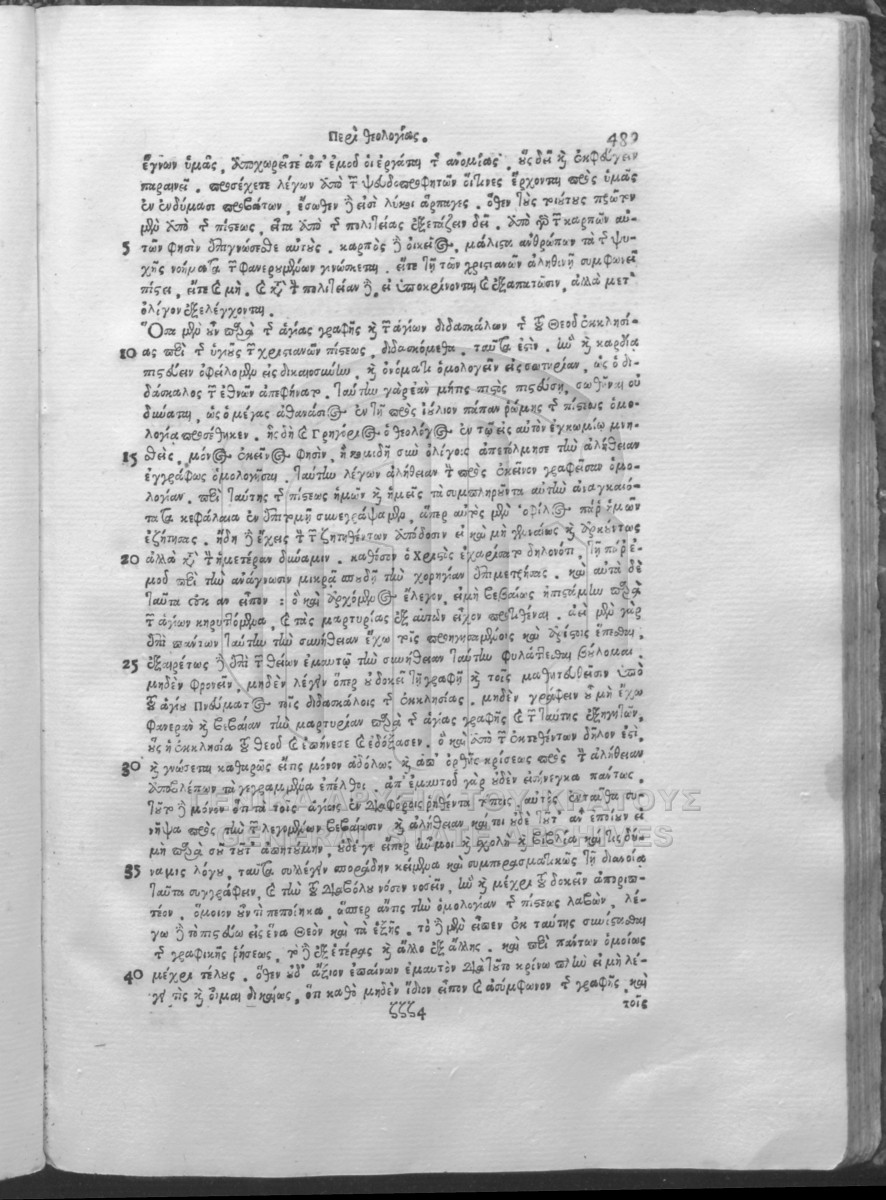 Περὶ θεολογίας. 489
ἔγνων ὑμᾶς, ἀποχωρεῖτε ἀπ' ἐμοῦ οἱ ἐργάται τῆς ἀνομίας, οὓς δεῖ καὶ ἐκφεύγειν
παραινεῖ. προσέχετε λέγων ἀπὸ τῶν ψευδοπροφητῶν οἵτινες ἔρχονται πρὸς ὑμᾶς
ἐν ἐνδύμασι προβάτων, ἔσωθεν δέ εἰσι λύκοι ἅρπαγες. ὅθεν τοὺς τοιούτους πρῶτον
μὲν ἀπὸ τῆς πίστεως, εἶτα ἀπὸ τῆς πολιτείας ἐξετάζειν δεῖ. ἀπὸ γὰρ τῶν καρπῶν αὐ-
5 τῶν φησὶν ἐπιγνώσεσθε αὐτούς. καρπὸς δὲ οἰκεῖος, μάλιστα ἀνθρώπων τὰ τῆς ψυ-
χῆς νοήματα τῶν φανερουμένων γινώσκεται. εἴτε τῇ τῶν χριστιανῶν ἀληθινῇ συμφωνεῖ
πίστει, εἴτε καὶ μή. καὶ κατὰ τὴν πολιτείαν δὲ, εἰ ὑποκρίνονται καὶ ἐξαπατῶσιν, ἀλλὰ μετ'
ὀλίγον ἐξελέγχονται.
Ὅσα μὲν οὖν παρὰ τῆς ἁγίας γραφῆς καὶ τῶν ἁγίων διδασκάλων τῆς τοῦ Θεοῦ ἐκκλησί-
10 ας περὶ τῆς ὑγιοῦς τῶν χριστιανῶν πίστεως, διδασκόμεθα, ταῦτά ἐστιν. ἣν καὶ καρδίᾳ
πιστεύειν ὀφείλομεν εἰς δικαιοσύνην, καὶ ὀνόματι ὁμολογεῖν εἰς σωτηρίαν, ὡς ὁ δι-
δάσκαλος τῶν ἐθνῶν ἀπεφήνατο. ταύτην γὰρ ἐὰν μήτις πιστῶς πιστεύσῃ, σωθῆναι οὐ
δύναται, ὡς ὁ μέγας ἀθανάσιος ἐν τῇ πρὸς ἰούλιον πάπαν ῥώμης τῆς πίστεως ὁμο-
λογίᾳ προσέθηκεν. ἧς δὴ καὶ Γρηγόριος ὁ θεολόγος ἐν τῷ εἰς αὐτὸν ἐγκωμίῳ μνη-
15 σθεὶς, μόνος ἐκεῖνος φησὶν, ἢ κομιδῇ σὺν ὀλίγοις ἀπετόλμησε τὴν ἀλήθειαν
ἐγγράφως ὁμολογῆσαι. ταύτην λέγων ἀλήθειαν τὴν πρὸς ἐκεῖνον γραφεῖσαν ὁμο-
λογίαν. περὶ ταύτης τῆς πίστεως ἡμῶν καὶ ἡμεῖς τὰ συμπληροῦντα αὐτὴν ἀναγκαιό-
τατα κεφάλαια ἐν ἐπιτομῇ συνεγράψαμεν, ἅπερ αὐτὸς μὲν ὦ φίλος παρ' ἡμῶν
ἐζήτησας. ἤδη δὲ ἔχεις τὴν τῶν ζητηθέντων ἀπόδοσιν εἰ καὶ μὴ γενναίως καὶ ἀρκούντως
20 ἀλλὰ κατὰ τὴν ἡμετέραν δύναμιν. καθόσον ὁ Χριστὸς ἐχαρίσατο δηλονότι, τῇ παρ' ἐ-
μοῦ περὶ τὴν ἀνάγνωσιν μικρᾷ σπουδῇ τὴν χορηγίαν ἐπιμετρήσας. καὶ αὐτὰ δὲ
ταῦτα οὐκ ἂν εἶπον: ὃ καὶ ἀρχόμενος ἔλεγον, εἰ μὴ βεβαίως ἠπιστάμην παρὰ
τῶν ἁγίων κηρυττόμενα, καὶ τὰς μαρτυρίας ἐξ αὐτῶν εἶχον προτιθέναι. ἀεὶ μὲν γὰρ
ἐπὶ πάντων ταύτην τὴν συνήθειαν ἔχω τοῖς προηγησαμένοις καὶ ἀρίστοις ἕπεσθαι,
25 ἐξαιρέτως δὲ ἐπὶ τῶν θείων ἐμαυτῷ τὴν συνήθειαν ταύτην φυλάττεσθαι βούλομαι.
μηδὲν φρονεῖν, μηδὲν λέγειν ὅπερ οὐ δοκεῖ τῇ γραφῇ καὶ τοῖς μαθητευθεῖσιν ὑπὸ
τοῦ ἁγίου Πνεύματος τοῖς διδασκάλοις τῆς ἐκκλησίας. μηδὲν γράφειν οὗ μὴ ἔχω
φανερὰν καὶ βεβαίαν τὴν μαρτυρίαν παρὰ τῆς ἁγίας γραφῆς καὶ τῶν ταύτης ἐξηγητῶν,
οὓς ἡ ἐκκλησία τοῦ Θεοῦ καὶ ἐπῄνεσε καὶ ἐδόξασεν. ὃ καὶ ἀπὸ τῶν ἐκτεθέντων δῆλον ἐστί.
30 καὶ γνώσεται καθαρῶς εἴτις μόνον ἀδόλως καὶ ἀπ' ὀρθῆς κρίσεως πρὸς τὴν ἀλήθειαν
ἀποβλέπων τὰ γεγραμμένα ἐπέλθοι. ἀπ' ἐμαυτοῦ γὰρ οὐδὲν εἰσήνεγκα πάντως.
τοῦτο δὲ μόνον ὅτι τὰ τοῖς ἁγίοις ἐν διαφόροις ῥηθέντα τόποις ταῦτα ἐνταῦθα συ-
νῆψα πρὸς τὴν τῶν λεγομένων βεβαίωσιν καὶ ἀλήθειαν καίτοι οὐδὲ τοῦτ' ἂν ἐποίουν εἰ
μὴ παρὰ σοῦ τοῦτ' ἀπῃτούμην, οὐδέ γε εἴπερ ἦν μοι καὶ σχολὴ καὶ βιβλία καὶ τις δύ-
35 ναμις λόγου, ταῦτα συλλέγειν σποράδην κείμενα καὶ συμπερασματικῶς τῇ διανοίᾳ
ταῦτα συγγράφειν, καὶ τὴν τοῦ διαβόλου νόσον νοσεῖν, ἣν καὶ μέχρι τοῦ δοκεῖν ἀπορριπ-
τέον. ὅμοιον οὖν τι πεποίηκα, ὥσπερ ἄν τις τὴν ὁμολογίαν τῆς πίστεως λαβὼν, λέ-
γω δὲ τὸ πιστεύω εἰς ἕνα Θεὸν καὶ τὰ ἑξῆς. τὸ δὲ μὲν εἶπεν ἐκ ταύτης συνίστασθαι
τῆς γραφικῆς ῥήσεως, τὸ δὲ ἐξ ἑτέρας καὶ ἄλλο ἐξ ἄλλης. καὶ περὶ πάντων ὁμοίως
40 μέχρι τέλους. ὅθεν οὐδ' ἄξιον ἐπαίνων ἐμαυτὸν διὰ τοῦτο κρίνω πλὴν εἰ μὴ λέ-
γει τις καὶ οἶμαι δικαίως, ὅτι καθὸ μηδὲν ἴδιον εἶπον καὶ ἀσύμφωνον τῆς γραφῆς, καὶ
ζζζ4 τοῖς
ΓΕΝΙΚΑ ΑΡΧΕΙΑ ΤΟΥ ΚΡΑΤΟΥΣ
GENERAL STATE ARCHIVES